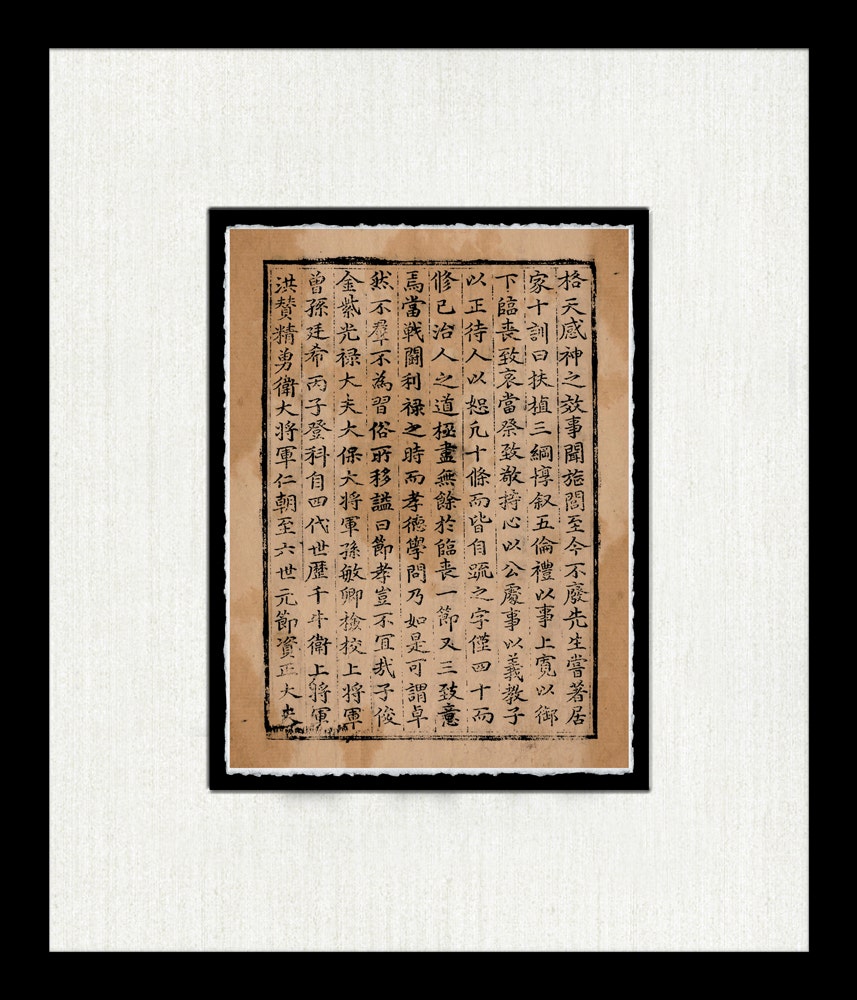 格天感神之效事聞旌閭至今不廢先生嘗著居
家十訓曰扶植三綱惇叙五倫禮以事上寬以御
下臨喪致哀當祭致敬持心以公處事以義教子
以正待人以恕凡十條而皆自䟽之字僅四十而
修己治人之道極盡無餘於臨喪一節又三致意
焉當戰鬪利禄之時而孝德學問乃如是可謂卓
然不羣不為習俗所移謚曰節孝豈不宜哉子俊
金紫光禄大夫太保大將軍孫敏卿檢校上將軍
曾孫廷希丙子登科自四代世歷千牛衛上將軍
洪贊精勇衛大將軍仁朝至六世元節資正大夫